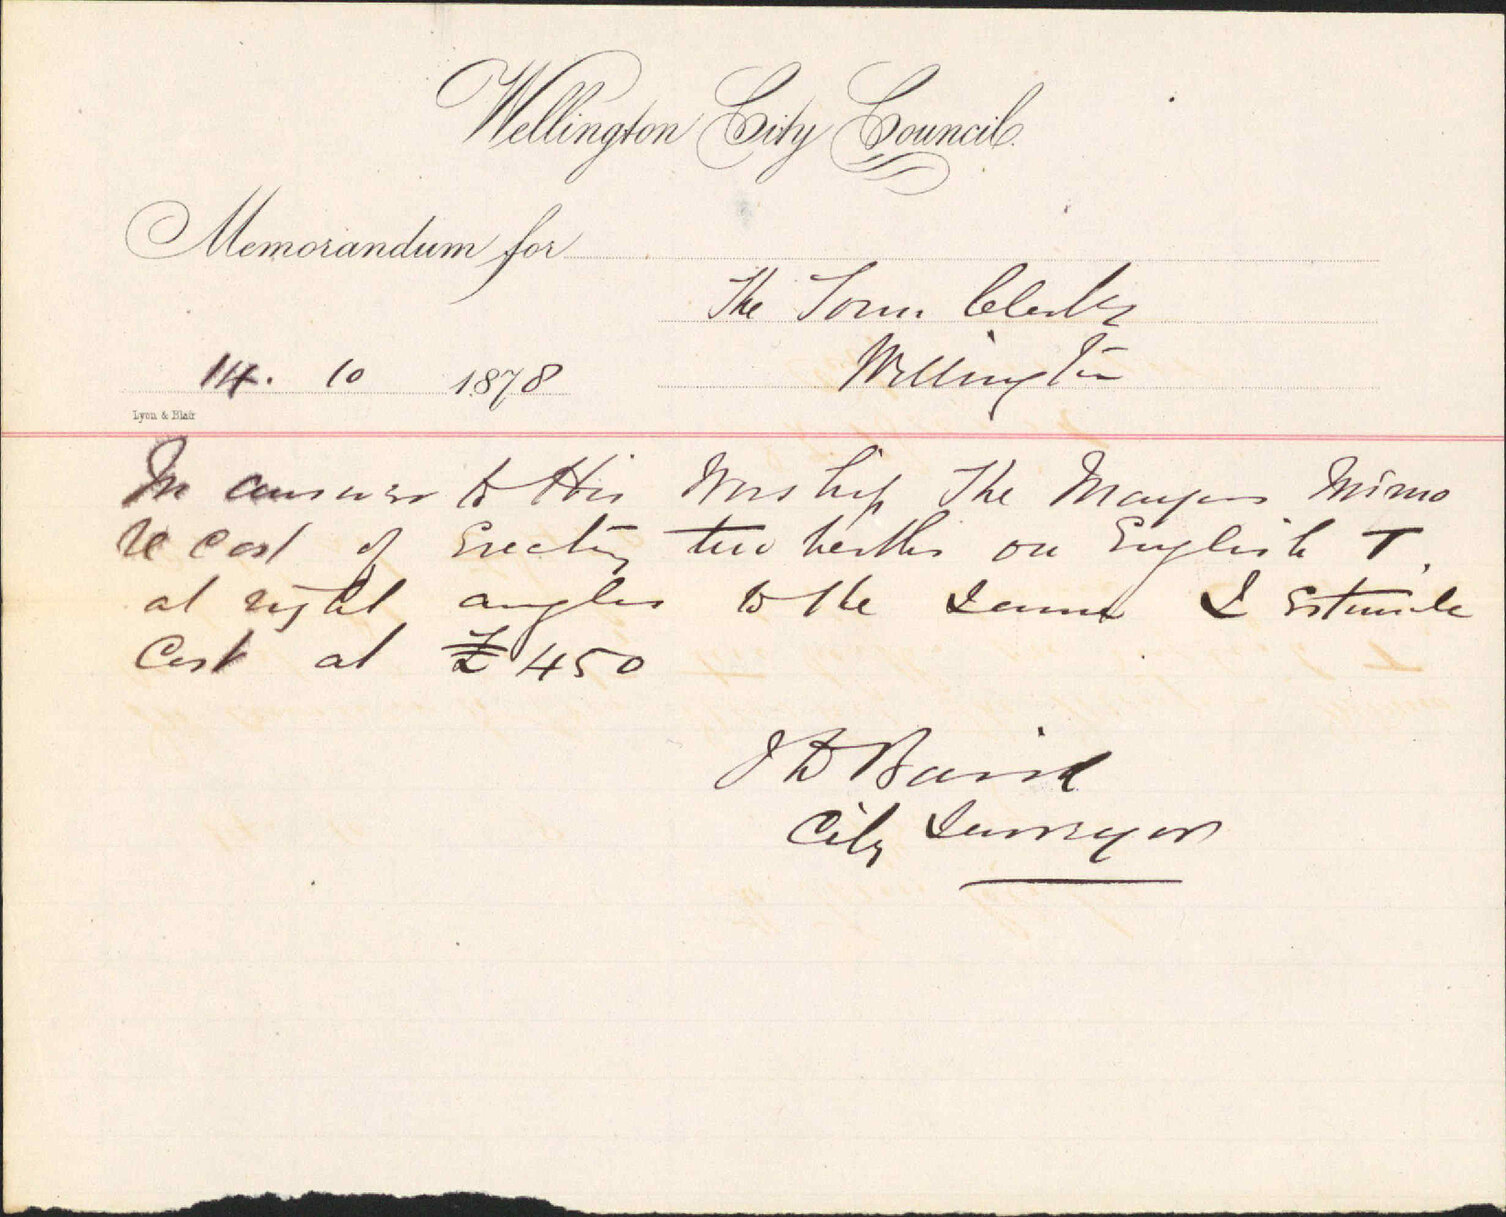 Wellington City Council.
Memorandum for
The Town Clerk
Wellington
14. 10 1878
Lyon & Blair
In answer to His Worship The Mayors Memo
re cost of Erecting two berths on English T.
at right angles to the Same I Estimate
Cost at £450
J D Baird
City Surveyor